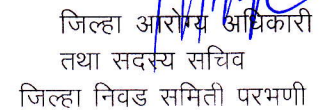 जिल्हा आरोग्य अधिकारी
तथा सदस्य सचिव
जिल्हा निवड समिती परभणी